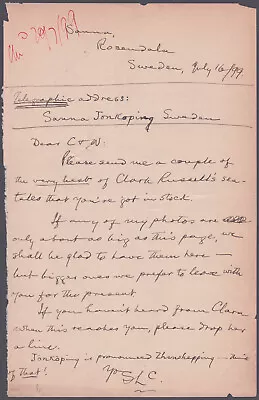 Sanna,
Rosendala
Sweden, July 16/99.
Telegraphic address:
Sanna Jonkoping Sweden
Dear C & W:
Please send me a couple of
the very best of Clark Russell's sea-
tales that you've got in stock.
If any of my photos are
only about as big as this page, we
shall be glad to have them here —
but bigger ones we prefer to leave with
you for the present
If you haven't heard from Clara
when this reaches you, please drop her
a line.
Jonkoping is pronounced — think
of that!
Ys SLC.